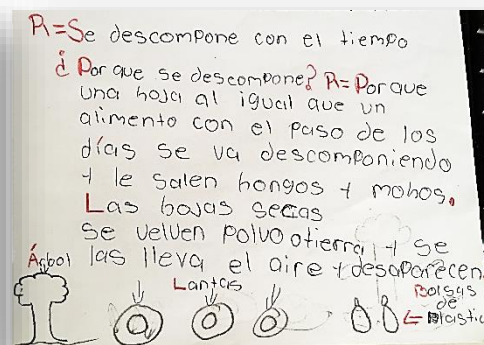 R=Se descompone con el tiempo
¿Por que se descompone? R=Porque
una hoja al igual que un
alimento con el paso de los
días se va descomponiendo
y le salen hongos y mohos.
Las hojas secas
se velven polvo otierra y se
Árbol las lleva el aire y desaparecen
Lantas
Bolsas
de
Plastic